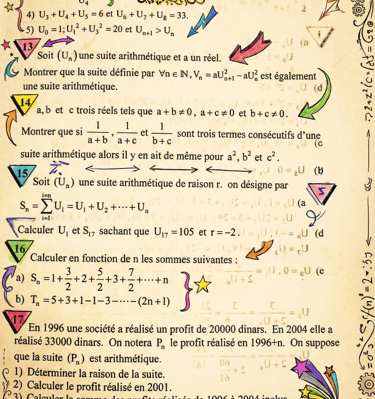 4) U₃ + U₄ + U₅ = 6 et U₆ + U₇ + U₈ = 33.
5) U₀ = 1; U₁² + U₃² = 20 et Uₙ₊₁ > Uₙ
13
Soit (Uₙ) une suite arithmétique et a un réel.
Montrer que la suite définie par ∀n∈N, Vₙ = aU²ₙ₊₁ − aU²ₙ est également
une suite arithmétique.
14
a, b et c trois réels tels que a + b ≠ 0, a + c ≠ 0 et b + c ≠ 0.
Montrer que si 1/(a+b), 1/(a+c) et 1/(b+c) sont trois termes consécutifs d'une
suite arithmétique alors il y en ait de même pour a², b² et c².
15
Soit (Uₙ) une suite arithmétique de raison r. on désigne par
Sₙ = ∑ᵢ₌₁ⁱ⁼ⁿ Uᵢ = U₁ + U₂ + ··· + Uₙ
Calculer U₁ et S₁₇ sachant que U₁₇ = 105 et r = −2.
16
Calculer en fonction de n les sommes suivantes :
a) Sₙ = 1 + 3/2 + 2 + 5/2 + 3 + 7/2 + ··· + n
b) Tₙ = 5 + 3 + 1 − 1 − 3 − ···· − (2n + 1)
17
En 1996 une société a réalisé un profit de 20000 dinars. En 2004 elle a
réalisé 33000 dinars. On notera Pₙ le profit réalisé en 1996+n. On suppose
que la suite (Pₙ) est arithmétique.
1) Déterminer la raison de la suite.
2) Calculer le profit réalisé en 2001.
3) Calculer la somme des profits réalisés de 1996 à 2004 inclus